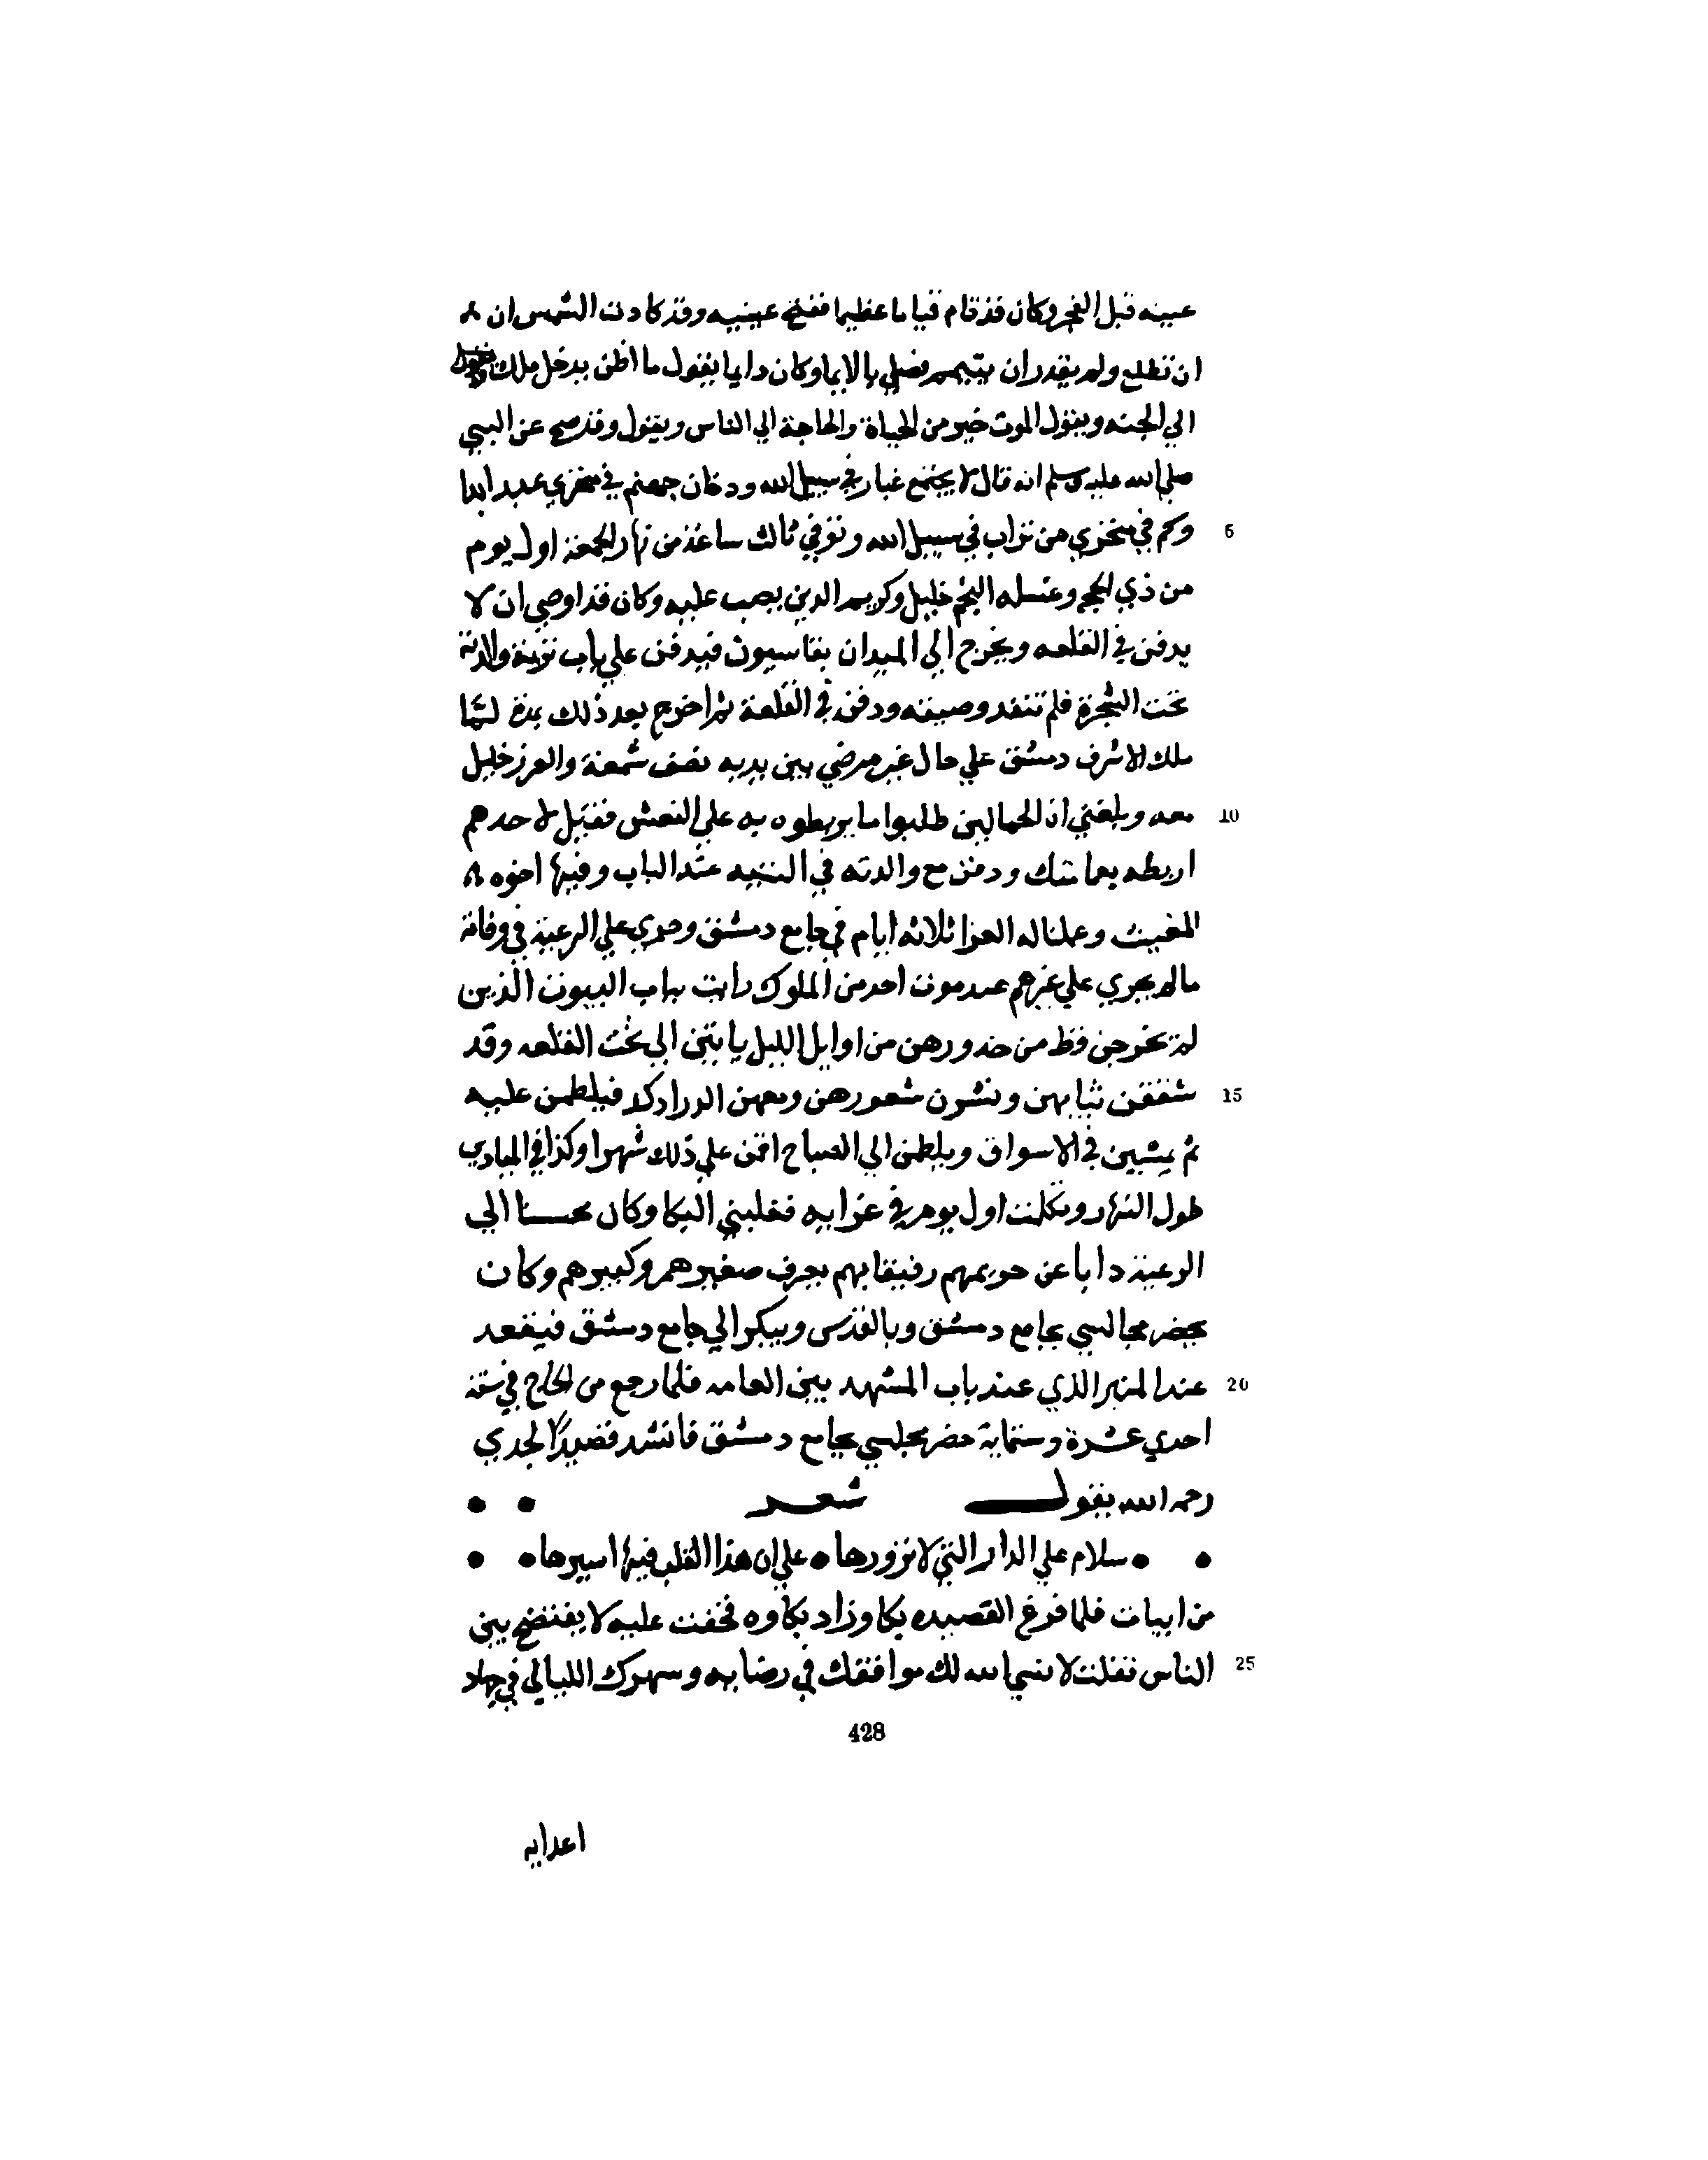 عينه قبل الفجر وكان قد قام قياما عظيما ففتح عينيه وقد كادت الشمس ان
ان تطلع ولم يقدر ان يتيمم فصلي بالايما وكان دايما يقول ما اظن يدخل ملك
الي الجنه ويقول الموت خير من الحياة والحاجة الي الناس ويقول وقد صح عن النبي
صلي الله عليه وسلم انه قال لا يجتمع غبار في سبيل الله ودخان جهنم في منخري عبد ابدا
5 وكم في منخري من تراب في سبيل الله وتوفي ثالث ساعة من نهار الجمعة اول يوم
من ذي الحجه وغسله النجم خليل وكريم الدين يصب عليه وكان قد اوصي ان لا
يدفن في القلعه ويخرج الي الميدان بقاسيون فيدفن علي باب تربة والدته
تحت الشجرة فلم تنفد وصيته ودفن في القلعة ثم اخرج بعد ذلك بمدة لما
ملك الاشرف دمشق علي حال غير مرضي بين يديه نصف شمعة والعرز خليل
10 معه وبلغني ان الحمالين طلبوا ما يربطون به علي النعش فقيل لاحدهم
اربطه بعمامتك ودفن مع والدته في القبه عند الباب وفيها اخوه
المغيث وعملنا له العزا ثلاثه ايام في جامع دمشق وجري علي الرعية في وفاته
مالم يجري علي غيرهم عند موت احد من الملوك رايت بباب البيوت الذين
لم تخرجن قط من خدورهن من اوايل الليل ياتين الي تحت القلعه وقد
15 شققن ثيابهن ونشرن شعورهن ومعهن الدرادك فيلطمن عليه
ثم يمشين في الاسواق ويلطمن الي الصباح اقمن علي ذلك شهرا وكذا في المبادي
طول النهار وتكلمت اول يوم في عزايه فغلبني البكا وكان محسنا الي
الرعية دابا عن حريمهم رفيقا بهم يعرف صغيرهم وكبيرهم وكان
يحضر مجالسي بجامع دمشق وبالقدس ويبكر الي جامع دمشق فيقعد
20 عند المنبر الذي عند باب المشهد بين العامه فلما رجع من الحاج في سنة
احدي عشرة وستماية حضر مجلسي بجامع دمشق فانشد قصيدة لجدي
رحمه الله يقول شعر
سلام علي الدار التي لا نزورها • علي ان هذا القلب فيها اسيرها
من ابيات فلما فرغ القصيده بكا وزاد بكاوه فخفت عليه لا يفتضح بين
25 الناس فقلت لا نسي الله لك موافقك في رضايه وسهرك الليالي في جهاد
428
اعدايه